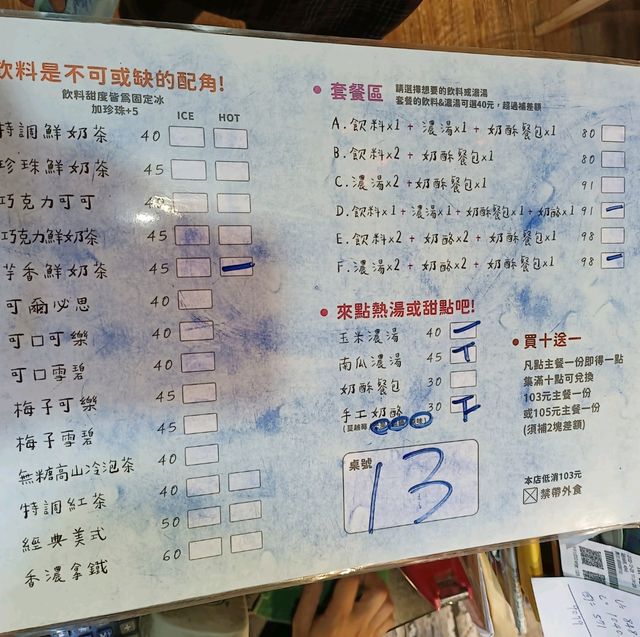 飲料是不可或缺的配角!
飲料甜度皆為固定冰
加珍珠+5
ICE HOT
特調鮮奶茶 40
珍珠鮮奶茶 45
巧克力可可 40
巧克力鮮奶茶 45
芋香鮮奶茶 45
可爾必思 40
可口可樂 40
可口雪碧 40
梅子可樂 45
梅子雪碧 45
無糖高山冷泡茶 40
特調紅茶 40
經典美式 50
香濃拿鐵 60
套餐區
請選擇想要的飲料或濃湯
套餐的飲料&濃湯可選40元，超過補差額
A.飲料x1+濃湯x1+奶酥餐包x1 80
B.飲料x2+奶酥餐包x1 80
C.濃湯x2+奶酥餐包x1 91
D.飲料x1+濃湯x1+奶酥餐包x1+奶酪x1 91
E.飲料x2+奶酪x2+奶酥餐包x1 98
F.濃湯x2+奶酪x2+奶酥餐包x1 98
來點熱湯或甜點吧!
玉米濃湯 40
南瓜濃湯 45
奶酥餐包 30
手工奶酪 30
桌號
13
買十送一
凡點主餐一份即得一點
集滿十點可兌換
103元主餐一份
或105元主餐一份
(須補2塊差額)
本店低消103元
禁帶外食